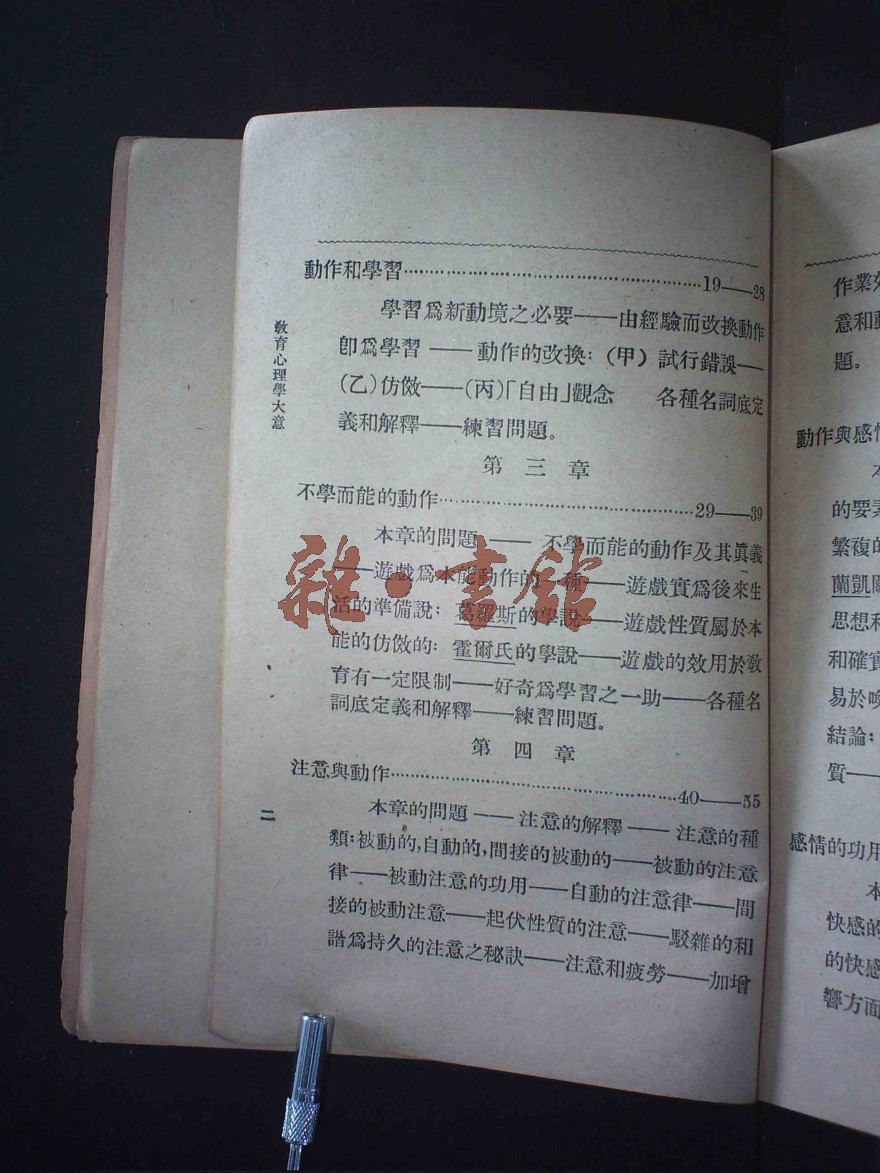 動作和學習……………………………………19——28
學習爲新動境之必要——由經驗而改換動作
卽爲學習——動作的改換：（甲）試行錯誤——
（乙）仿傚——（丙）「自由」觀念　各種名詞底定
義和解釋——練習問題。
第三章
不學而能的動作……………………………………29——39
本章的問題——不學而能的動作及其眞義
——遊戲爲本能動作的一種——遊戲實爲後來生
活的準備說：葛羅斯的學說——遊戲性質屬於本
能的仿傚的：霍爾氏的學說——遊戲的效用於敎
育有一定限制——好奇爲學習之一助——各種名
詞底定義和解釋——練習問題。
第四章
注意與動作……………………………………40——55
本章的問題——注意的解釋——注意的種
類：被動的，自動的，間接的被動的——被動的注意
律——被動注意的功用——自動的注意律——間
接的被動注意——起伏性質的注意——駁雜的和
諧爲持久的注意之秘訣——注意和疲勞——加增
敎育心理學大意
二
雜·書館
作業
意和
題。
動作與感情
的要
繁複的
蘭凱
思想和
和確實
易於喚
結論：
質——
感情的功用
快感的
的快感
響方面